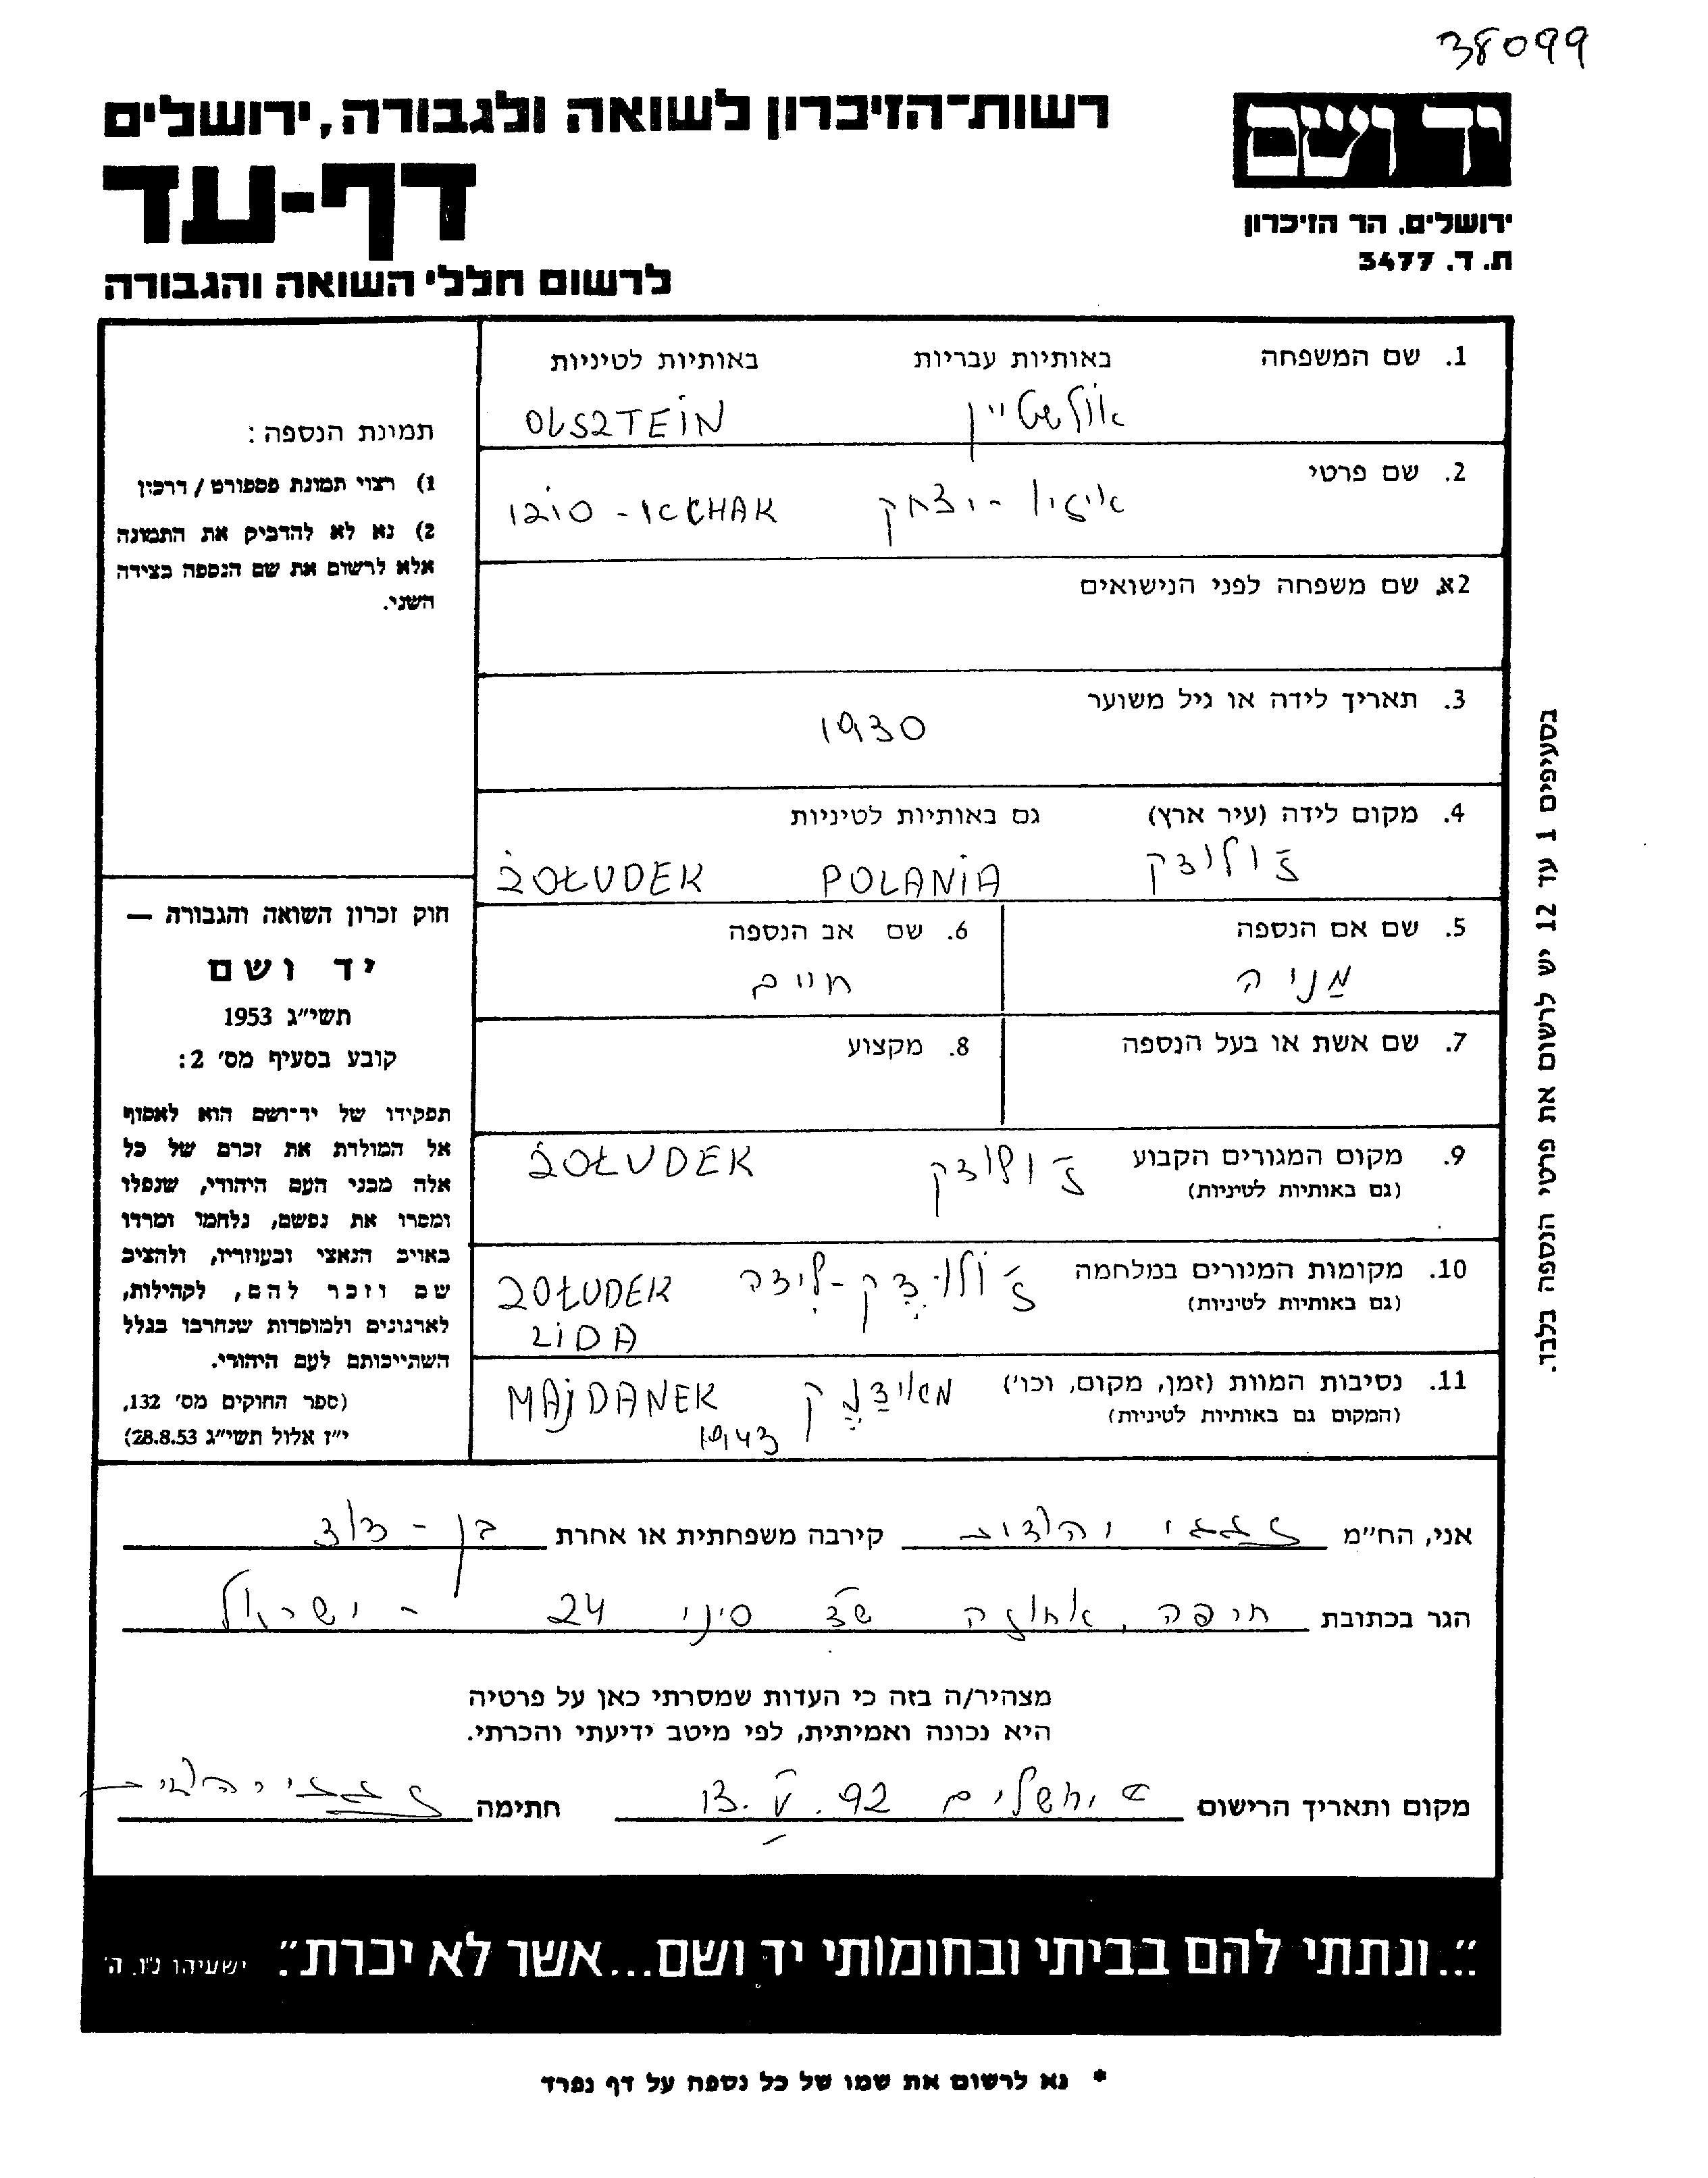 38099
יד ושם
רשות־הזיכרון לשואה ולגבורה, ירושלים
דף-עד
ירושלים, הר הזיכרון
ת. ד. 3477
לרשום חללי השואה והגבורה
1. שם המשפחה באותיות עבריות באותיות לטיניות
אולשטיין OLSZTEIN
2. שם פרטי
איזיו - יצחק IZIO - ICCHAK
2א. שם משפחה לפני הנישואים
3. תאריך לידה או גיל משוער
1930
4. מקום לידה (עיר ארץ) גם באותיות לטיניות
ז'ולודק POLANIA ŻOŁUDEK
5. שם אם הנספה
מַניה
6. שם אב הנספה
חיים
7. שם אשת או בעל הנספה
8. מקצוע
9. מקום המגורים הקבוע
(גם באותיות לטיניות)
ז'ולודק ŻOŁUDEK
10. מקומות המגורים במלחמה
(גם באותיות לטיניות)
ז'ולודק - לידה ZOŁUDEK
LIDA
11. נסיבות המוות (זמן, מקום, וכו')
(המקום גם באותיות לטיניות)
מאידַנֶק MAJDANEK
1943
תמונת הנספה:
1) רצוי תמונת פספורט / דרכון
2) נא לא להדביק את התמונה
אלא לרשום את שם הנספה בצידה
השני.
חוק זכרון השואה והגבורה —
יד ושם
תשי״ג 1953
קובע בסעיף מס׳ 2:
תפקידו של יד־ושם הוא לאסוף
אל המולדת את זכרם של כל
אלה מבני העם היהודי, שנפלו
ומסרו את נפשם, נלחמו ומרדו
באויב הנאצי ובעוזריו, ולהציב
שם וזכר להם, לקהילות,
לארגונים ולמוסדות שנחרבו בגלל
השתייכותם לעם היהודי.
(ספר החוקים מס׳ 132,
י״ז אלול תשי״ג 28.8.53)
בסעיפים 1 עד 12 יש לרשום את פרטי הנספה בלבד.
אני, הח״מ קירבה משפחתית או אחרת בן - דוד
הגר בכתובת חיפה, אחוזה שד סיני 24 - ישראל
מצהיר/ה בזה כי העדות שמסרתי כאן על פרטיה
היא נכונה ואמיתית, לפי מיטב ידיעתי והכרתי.
מקום ותאריך הרישום ירושלים 13. V. 92 חתימה
״...ונתתי להם בביתי ובחומותי יד ושם...אשר לא יכרת״. ישעיהו נ״ו, ה׳
* נא לרשום את שמו של כל נספה על דף נפרד